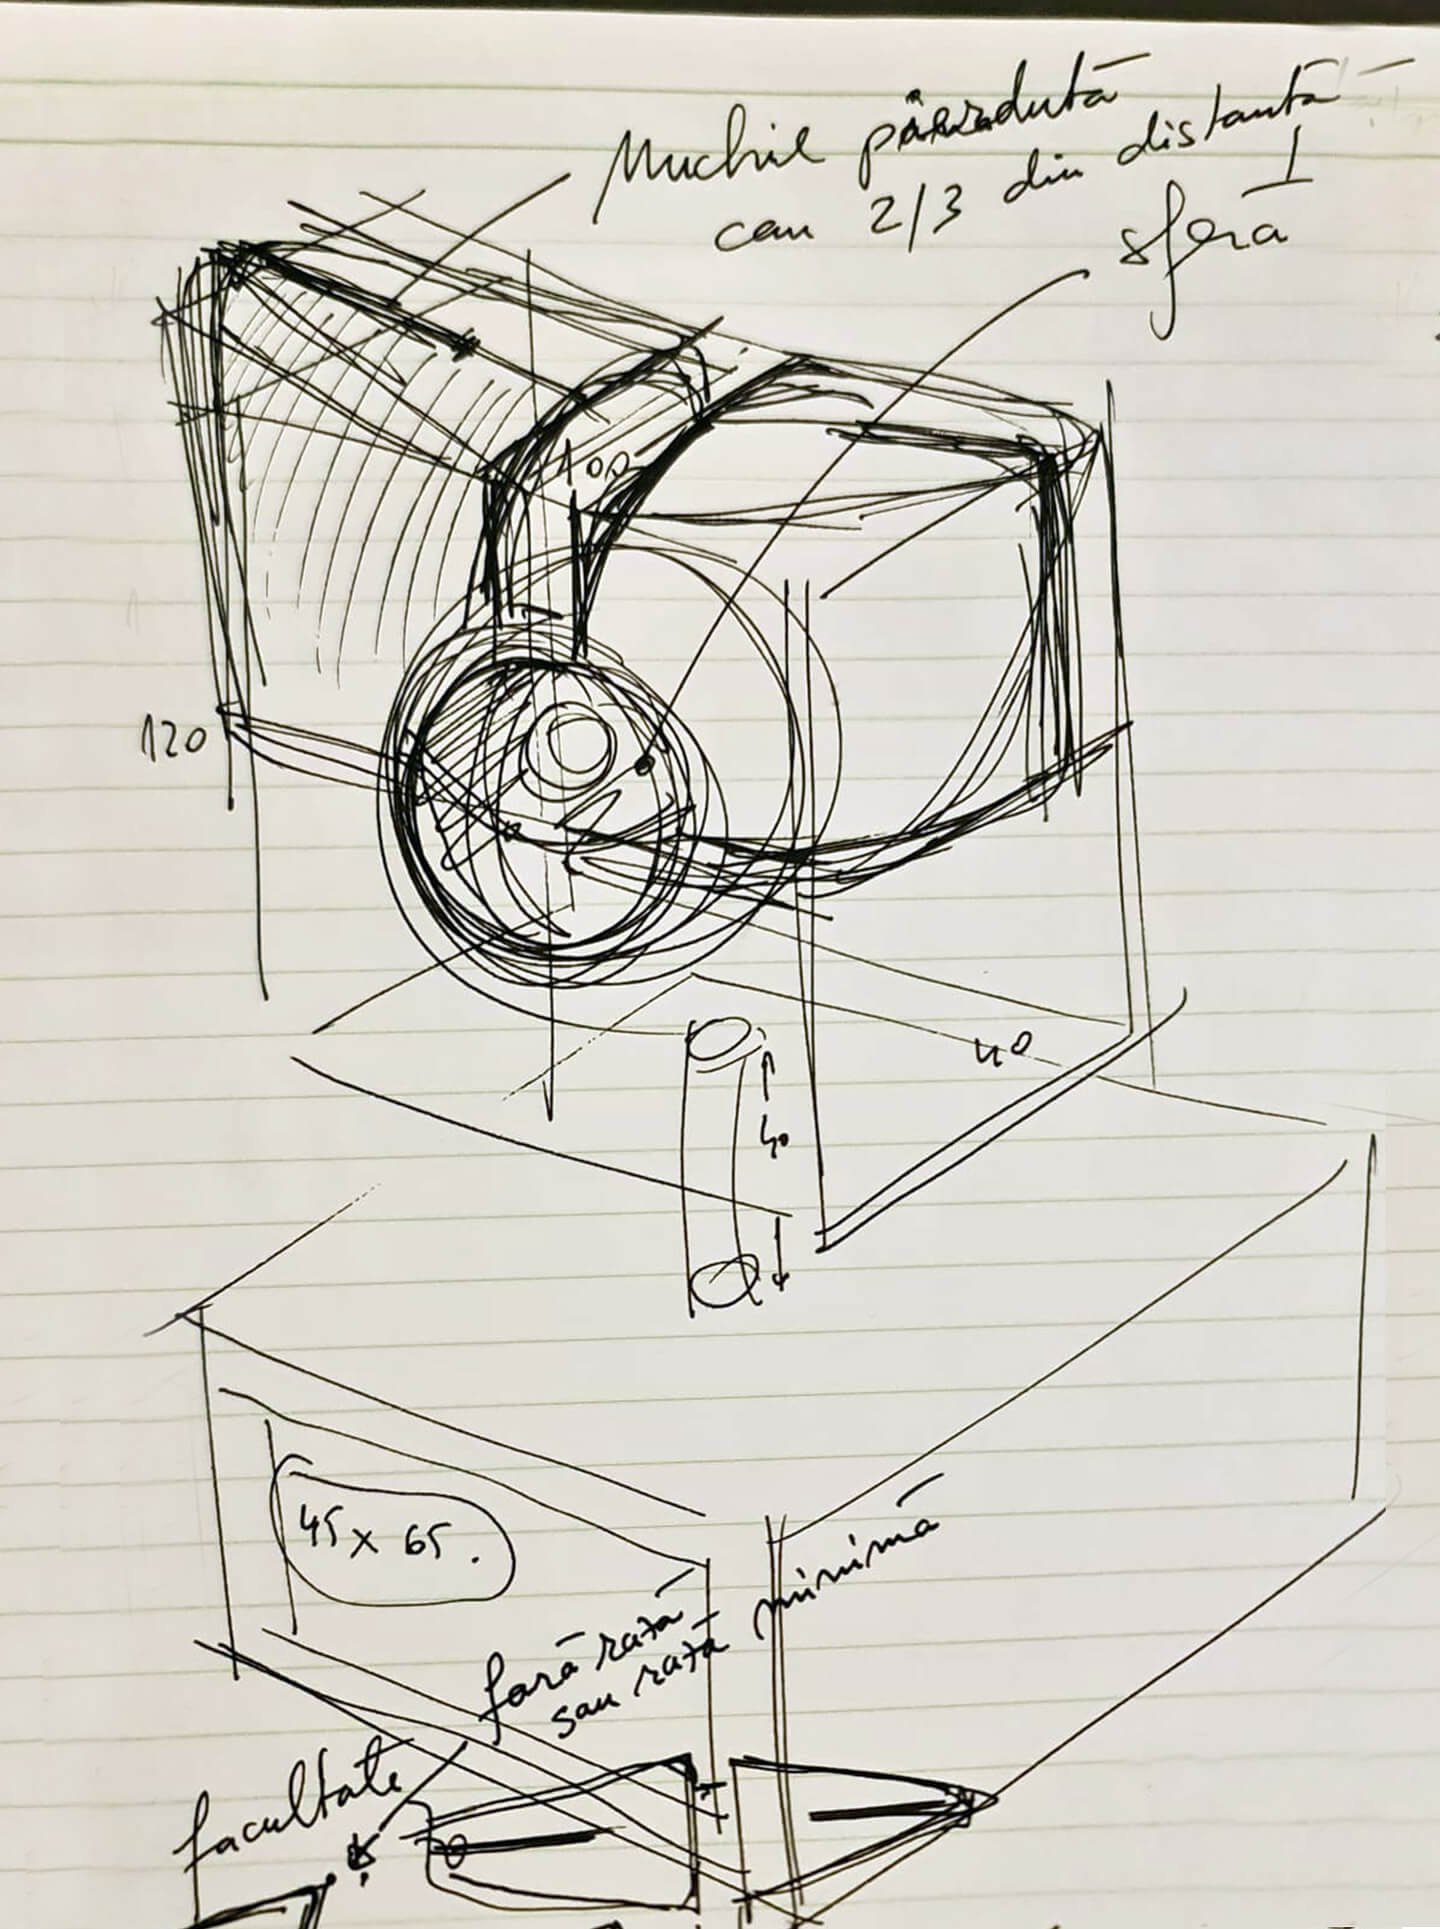 Muchie pierdută
cam 2/3 din distanță
sferă
100
120
40
40
45 x 65.
fară rată
sau rată minimă
facultate